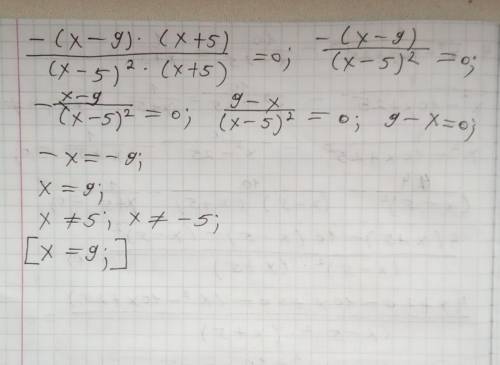 -(x-9)·(x+5) / (x-5)²·(x+5) =0; -(x-9) / (x-5)² =0;
- x-9 / (x-5)² = 0; 9-x / (x-5)² = 0; 9-x=0;
-x=-9;
x=9;
x≠5; x≠-5;
[x=9;]